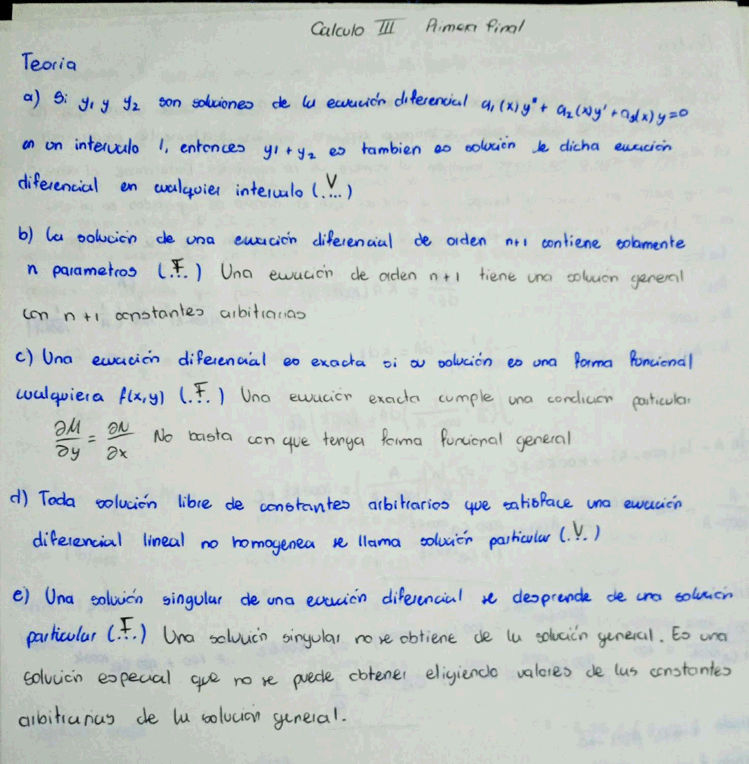 Calculo III Primer final
Teoria
a) Si y₁ y y₂ son soluciones de la ecuación diferencial a₁(x)y'' + a₂(x)y' + a₃(x)y=0
en un intervalo I, entonces y₁ + y₂ es tambien es solución de dicha ecuación
diferencial en cualquier intervalo (.V..)
b) La solución de una ecuación diferencial de orden n+1 contiene solamente
n parametros (.F.) Una ecuación de orden n+1 tiene una solución general
con n+1 constantes arbitrarias
c) Una ecuación diferencial es exacta si su solución es una forma funcional
cualquiera f(x,y) (.F.) Una ecuación exacta cumple una condicion particular
∂M/∂y = ∂N/∂x No basta con que tenga forma funcional general
d) Toda solución libre de constantes arbitrarios que satisface una ecuación
diferencial lineal no homogenea se llama solución particular (.V.)
e) Una solución singular de una ecuación diferencial se desprende de una solución
particular (.F.) Una solución singular no se obtiene de la solución general. Es una
solución especial que no se puede obtener eligiendo valores de las constantes
arbitrarias de la solución general.